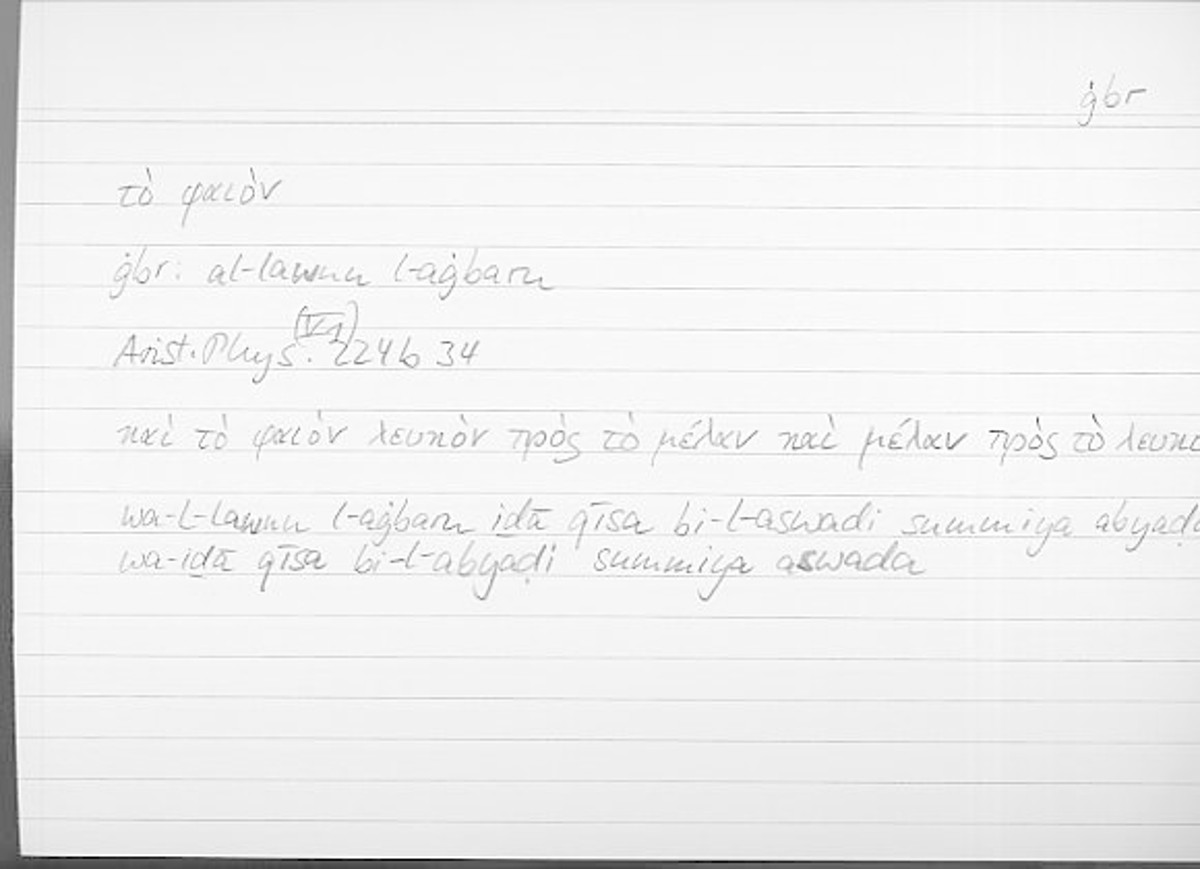 ġbr
τὸ φαιόν
ġbr: al-lawnu l-aġbaru
(V 1)
Arist. Phys. 224b 34
καὶ τὸ φαιὸν λευκὸν πρὸς τὸ μέλαν καὶ μέλαν πρὸς τὸ
wa-l-lawnu l-aġbaru iḏā qīsa bi-l-aswadi summiya
wa-iḏā qīsa bi-l-abyaḍi summiya aswada